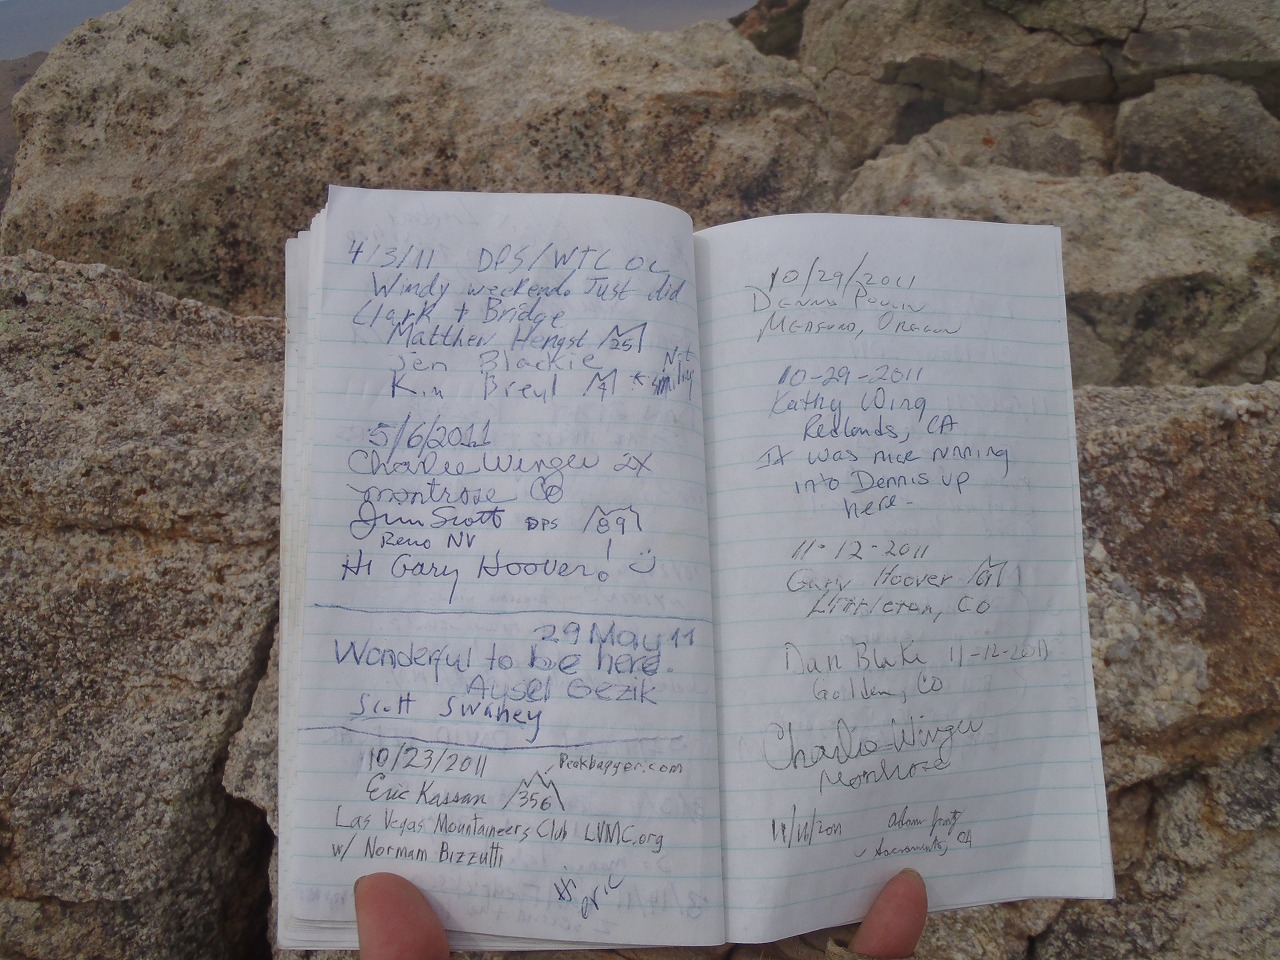 4/3/11 DPS/WTC OC
Windy weekend. Just did
Clark + Bridge
Matthew Hengst 25
Jen Blackie
Kim Breyl * Not smiling
5/6/2011
Charlie Winger 2X
montrose CO
Jim Scott DPS 89
Reno NV !
Hi Gary Hoover!
29 May 11
Wonderful to be here.
Aysel Gezik
Scott Swaney
10/23/2011 Peakbagger.com
Eric Kassan 356
Las Vegas Mountaineers Club LVMC.org
w/ Normam Bizzutti
Hi Eric
10/29/2011
Dennis Poulin
Medford, Oregon
10-29-2011
Kathy Wing
Redlands, CA
It was nice running
into Dennis up
here -
11-12-2011
Gary Hoover
Littleton, CO
Dan Blake 11-12-2011
Golden, CO
Charlie Winger
Montrose
Adam
Sacramento, CA